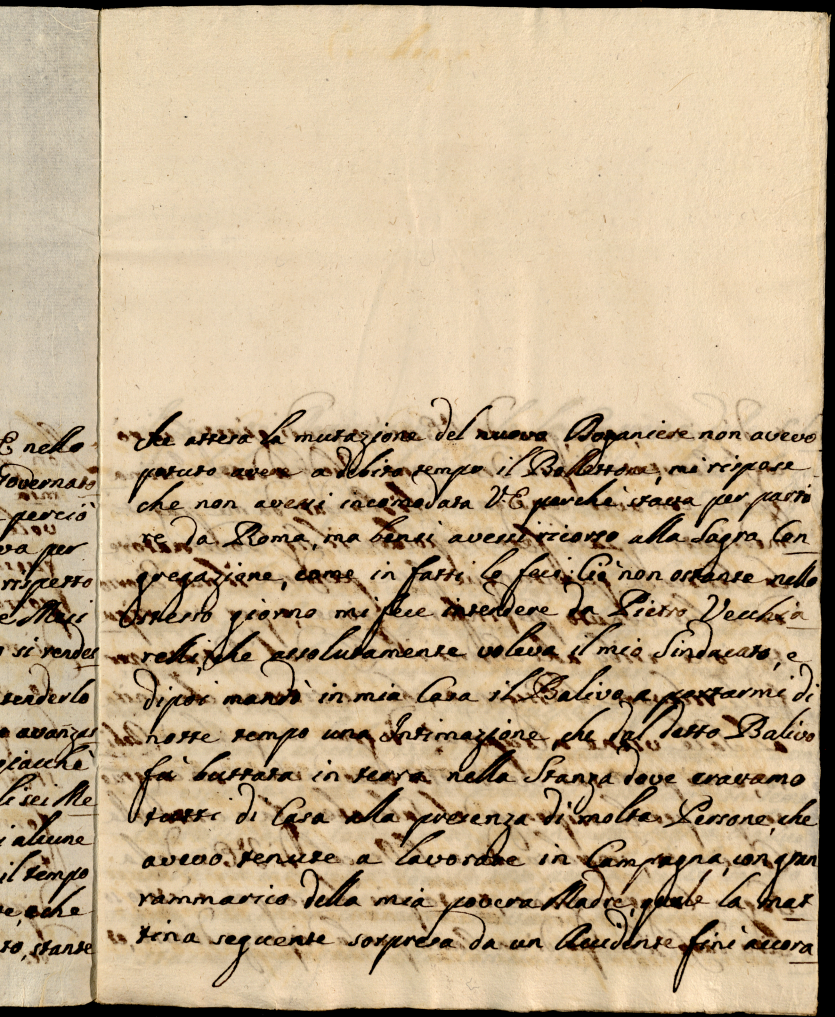 E nello
Governato
perciò
va per
rispetto
e Mesi
si rendes
renderlo
avanzas
giacchè
li sei Me
i alcune
il tempo
ve, e che
to, stante
che attesa la mutazione del nuovo Doganiere non avevo
potuto avere a debito tempo il Bollettone, mi rispose
che non avessi incomodata V.E. perchè stava per parti
re da Roma, ma bensì avessi ricorso alla Sagra Con
gregazione, come in fatti lo feci. Ciò non ostante nello
stesso giorno mi fece intendere da Pietro Vecchia
relli, che assolutamente voleva il mio Sindacato, e
dipoi mandò in mia Casa il Balivo a portarmi di
notte tempo una Intimazione che dal detto Balivo
fù buttata in terra nella Stanza dove eravamo
tutti di Casa alla presenza di molte Persone, che
avevo tenute a lavorare in Campagna, con gran
rammarico della mia povera Madre, quale la mat
tina seguente sorpresa da un Accidente finì ancora